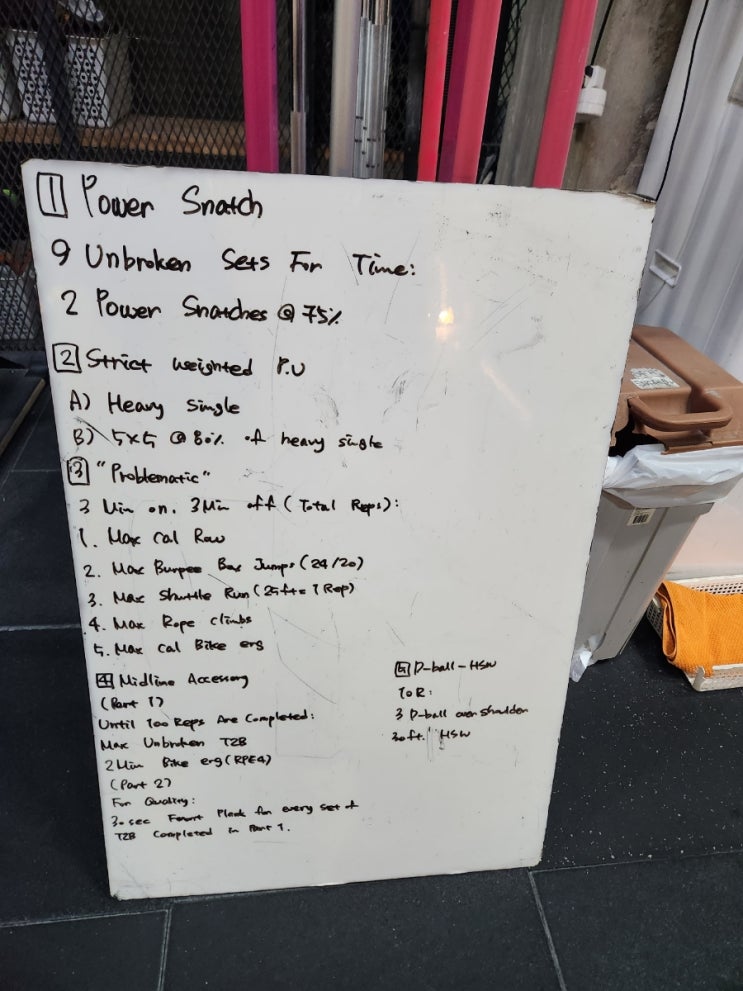 1 Power Snatch
9 Unbroken Sets For Time:
2 Power Snatches @ 75%
2 Strict weighted P.U
A) Heavy single
B) 5x5 @ 80% of heavy single
3 "Problematic"
3 Min on, 3 Min off (Total Reps):
1. Max Cal Row
2. Max Burpee Box Jumps (24/20)
3. Max Shuttle Run (25ft = 1 Rep)
4. Max Rope climbs
5. Max Cal Bike erg
4 Midline Accessory
(Part 1)
Until 100 Reps Are Completed:
Max Unbroken T2B
2 Min Bike erg (RPE4)
(Part 2)
For Quality:
30 sec Front Plank for every set of
T2B Completed in Part 1.
5 D-ball-HSW
10R:
3 D-ball over shoulder
30ft. HSW